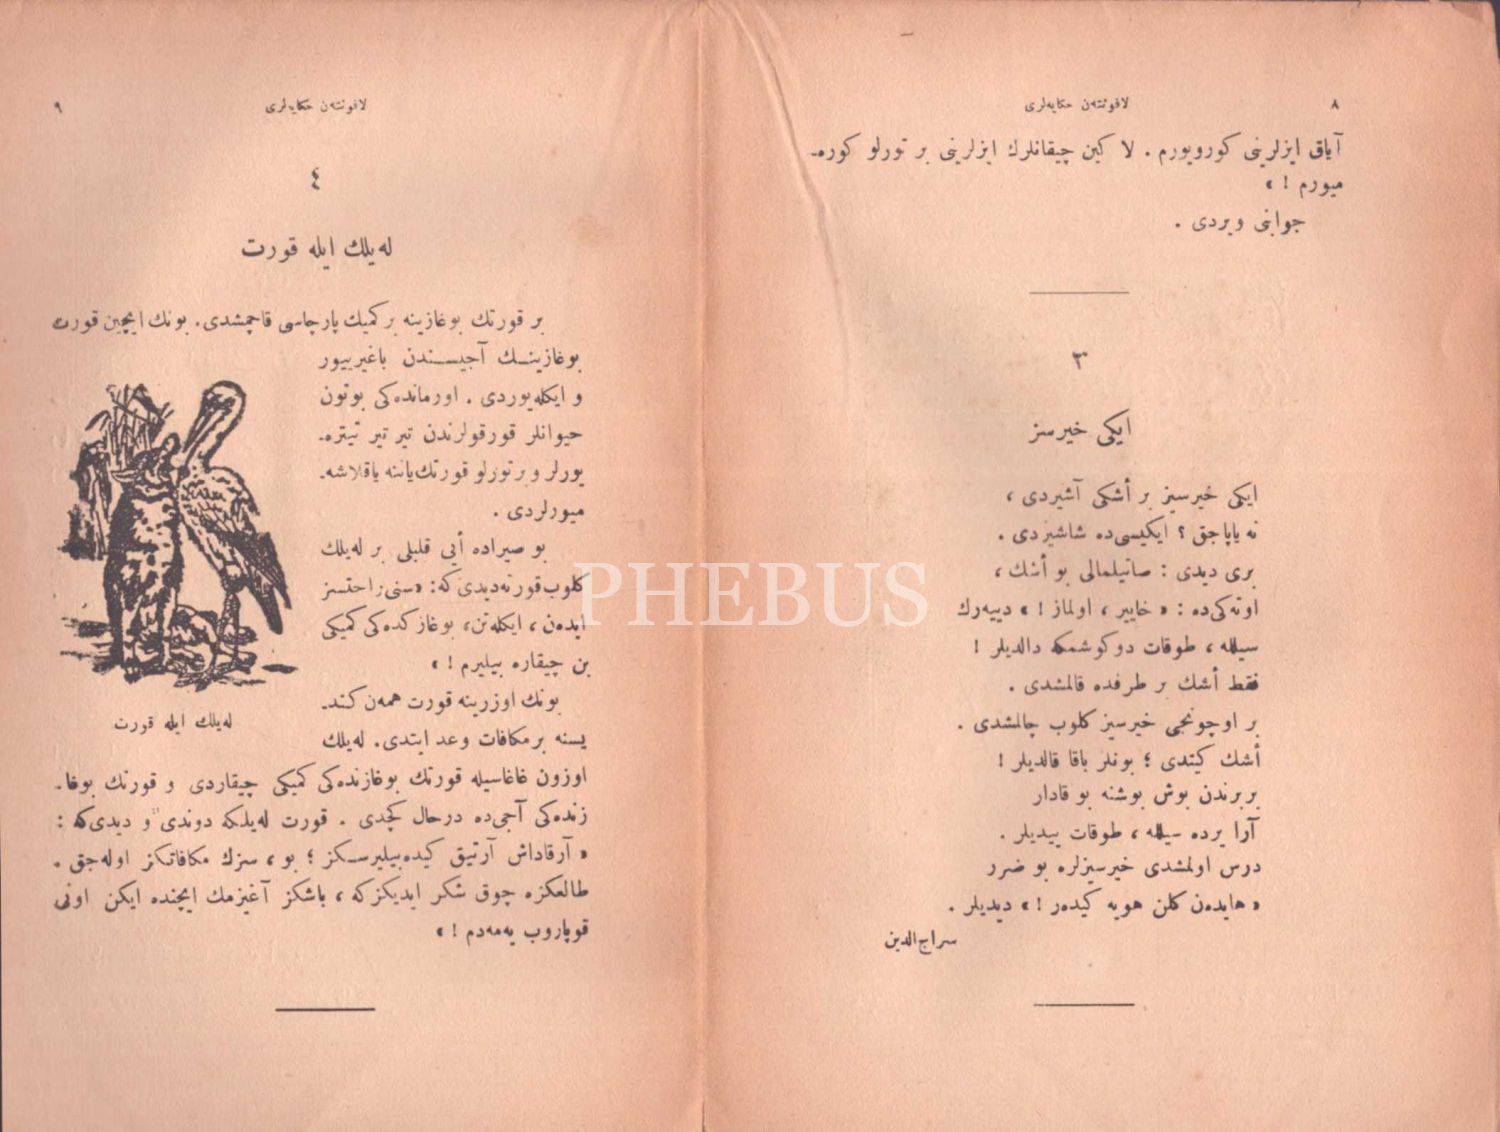 ٨
لافونته‌ن حكایه‌لری
آیاق ایزلرینی كورویورم . لا كین چیقانلرك ایزلرینی بر تورلو كوره‌ـ
میورم ! »
جوابنی ویردی .
٣
ایكی خیرسز
ایكی خیرسیز بر أشكی آشیردی ،
نه یاپاجق ؟ ایكیسی‌ده شاشیردی .
بری دیدی : صاتیلمالی بو أشك ،
اوته‌كی‌ده : « خاییر ، اولماز ! » دییه‌رك
سیلله ، طوقات دوكوشمكه دالدیلر !
فقط أشك بر طرفده قالمشدی .
بر اوچونجی خیرسیز كلوب چالمشدی .
أشك كیتدی ؛ بونلر باقا قالدیلر !
بربرندن بوش بوشنه بو قادار
آرا یرده سیلله ، طوقات ییدیلر .
درس اولمشدی خیرسیزلره بو ضرر
« هایده‌ن كلن هویه كیده‌ر ! » دیدیلر .
سراج‌الدین
لافونته‌ن حكایه‌لری
٩
٤
له‌یلك ایله قورت
بر قورتك بوغازینه بر كمیك پارچاسی قاچمشدی . بونك ایچین قورت
بوغازینــك آجیســندن باغیرییور
و ایكله‌یوردی . اورمانده‌كی بوتون
حیوانلر قورقولرندن تیر تیر تیتره‌ـ
یورلر و برتورلو قورتك یاننه یاقلاشه‌ـ
میورلردی .
بو صیراده أیی قلبلی بر له‌یلك
كلوب قورته دیدی كه : «سنی راحتسز
ایده‌ن ، ایكله‌تن ، بوغازكده‌كی كمیكی
بن چیقاره بیلیرم ! »
بونك اوزرینه قورت همه‌ن كندـ
یسنه بر مكافات وعد ایتدی . له‌یلك
اوزون غاغاسیله قورتك بوغازنده‌كی كمیكی چیقاردی و قورتك بوغاـ
زنده‌كی آجی‌ده درحال كچدی . قورت له‌یلكه دوندی و دیدی كه :
« آرقاداش آرتیق كیده‌بیلیرسـكز ؛ بو ، سزك مكافاتكز اوله‌جق .
طالعكزه چوق شكر ایدیكزكه ، باشكز آغیزمك ایچنده ایكن اونی
قوپاروب یه‌مه‌دم ! »
له‌یلك ایله قورت
PHEBUS